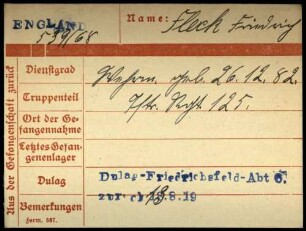 ENGLAND
539/68
Name: Fleck Friedrig
Aus der Gefangenschaft zurück
Dienstgrad
Wehrm. geb. 26.12.82.
Truppenteil
Inftr. Regt. 125.
Ort der Ge-
fangennahme
Letztes Gefan-
genenlager
Dulag
Dulag-Friedrichsfeld-Abt 6.
Bemerkungen
zurück 13.8.19
Form. 587.